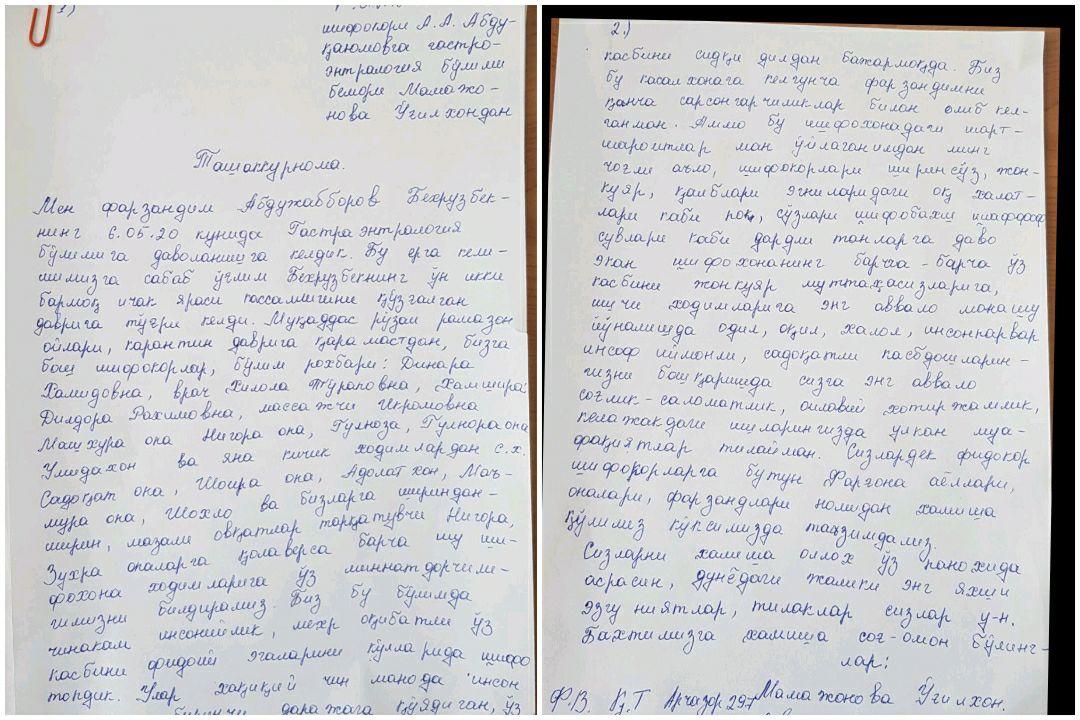 1)
шифокори А. А. Абду-
қаюмовга гастро-
энтралогия бўлими
бемори Мамажо-
нова Ўғилхондан
Ташаккурнома.
Мен фарзандим Абдужабборов Бехрузбек-
нинг 6.05.20 кунида Гастраэнтралогия
бўлимига даволанишга келдик. Бу ерга кели-
шимизга сабаб ўғлим Бехрузбекнинг ўн икки
бармоқ ичак яраси кассалигини қўзғалган
даврига тўғри келди. Муқаддас рўзаи рамазон
ойлари, карантин даврига қарамастдан, бизга
бош шифокорлар, бўлим рохбари: Динара
Хамидовна, врач Хилола Тураповна, Хамшира:
Дилдора Рахимовна, массажчи Икромовна
Машхура опа Нигора опа, Гулноза, Гулнора опа
Умидахон ва яна кичик ходимлардан с.х.
Садоқат опа, Шоира опа, Адолатхон, Маъ-
мура опа, Шохло ва бизларга ширидан-
ширин, мазали овқатлар тарқатувчи Нигора,
Зухра опаларга қолаверса барча шу ши-
фохона ходимларига ўз миннатдорчили-
гимизни билдирамиз. Биз бу бўлимда
чинакам инсонийлик, мехр оқибатли ўз
касбини фидоий эгаларини қўлларида шифо
топдик. Улар хақиқий чин манода инсон
биринчи даражага қўядиган, ўз
2.)
касбини сидқи дилдан бажармоқда. Биз
бу касалхонага келгунча фарзандимни
қанча сарсонгарчиликлар билан олиб кел-
ганман. Аммо бу шифохонадаги шарт-
шароитлар ман ўйлаганимдан минг
чоғли аъло, шифокорлари ширинсўз, жон-
куяр, қалблари эгниларидаги оқ халат-
лари каби пок, сўзлари шифобахш шаффоф
сувлари каби дардли танларга даво
экан шифохонанинг барча-барча ўз
касбини жонкуяр муттахасизларига,
ишчи ходимларига энг аввало мана шу
йўналишда одил, оқил, халол, инсонпарвар
инсоф иймонли, садоқатли касбдошларин-
гизни бошқаришда сизга энг аввало
соғлик-саломатлик, оилавий хотиржамлик,
келажакдаги ишларингизда улкан муа-
фақиятлар тилайман. Сизлардек фидокор
шифокорларга бутун Фарғона аёллари,
оналари, фарзандлари номидан хамиша
қўлимиз кўксимизда таъзимдамиз.
Сизларни хамиша оллох ўз панохида
асрасин, дунёдаги жамики энг яхши
эзгу ниятлар, тилаклар сизлар у-н.
Бахтимизга хамиша соғ-омон бўлинг-
лар!
Ф.В. Қ.Т Арчазор 297 Мамажонова Ўғилхон.